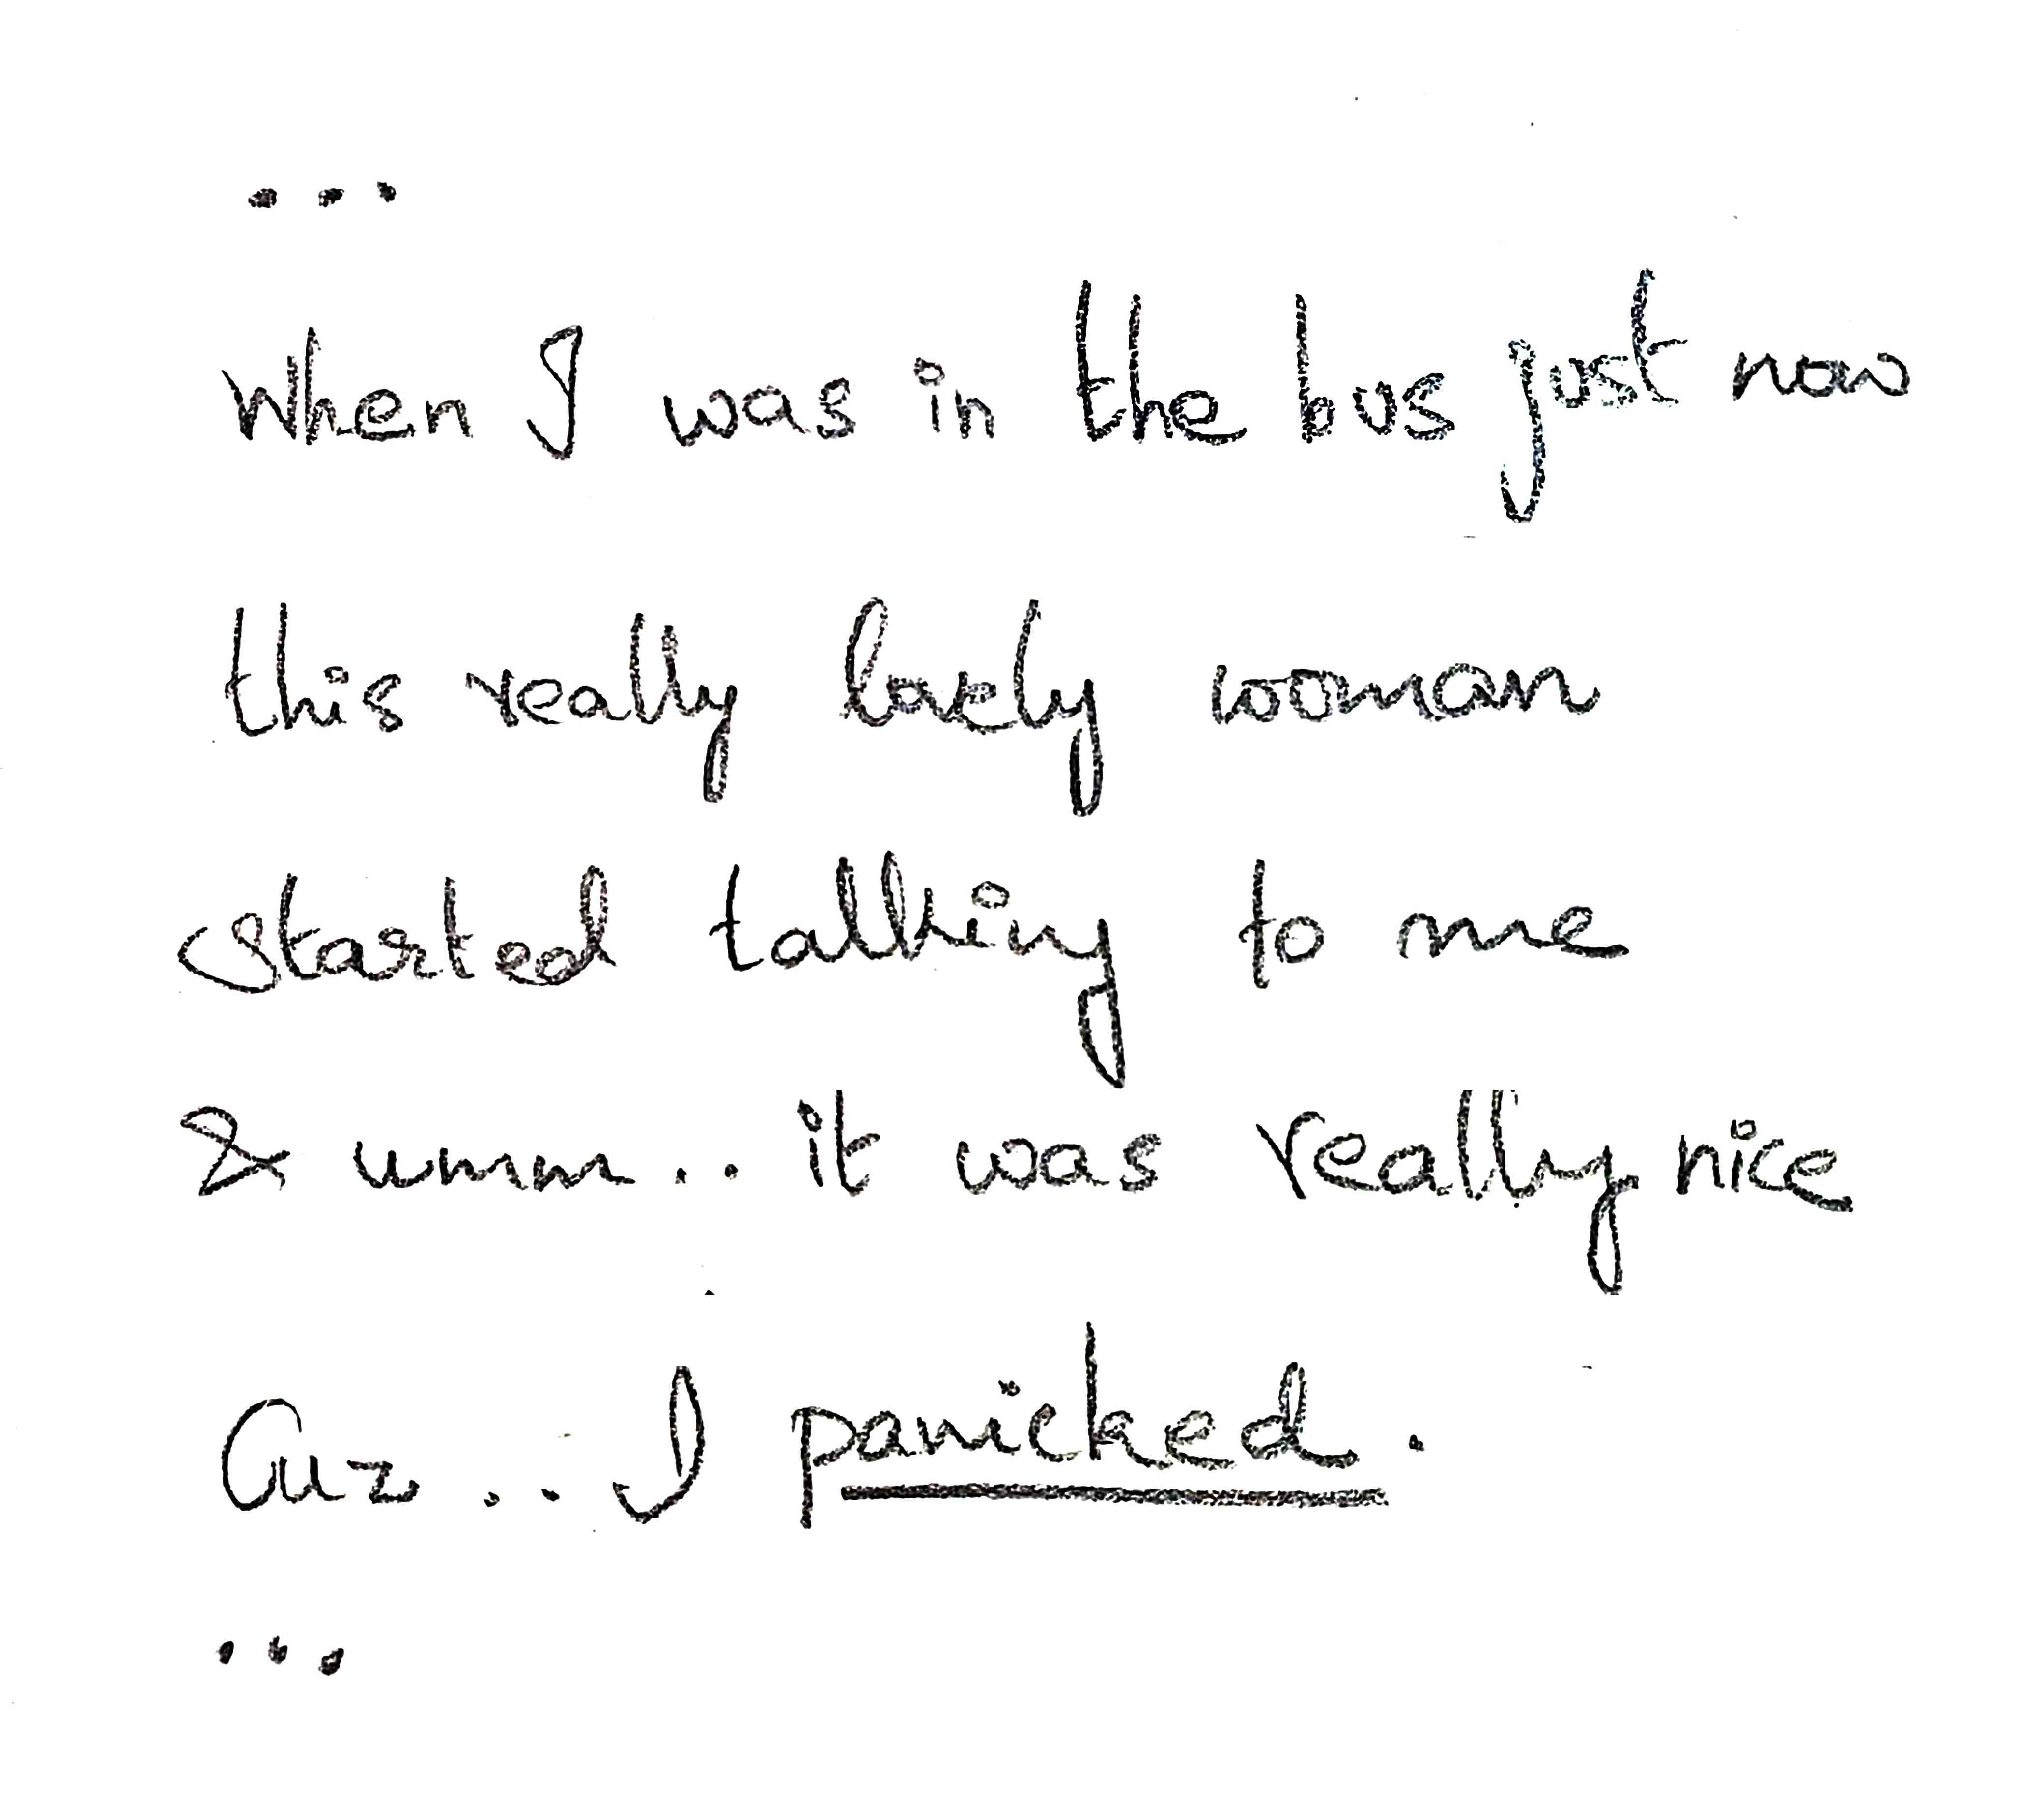 ...
when I was in the bus just now
this really lovely woman
started talking to me
& umm.. it was really nice
Cuz... I panicked.
...